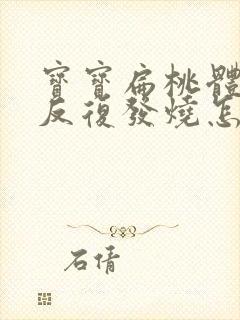 寶寶扁桃體
反復發燒怎
石倩